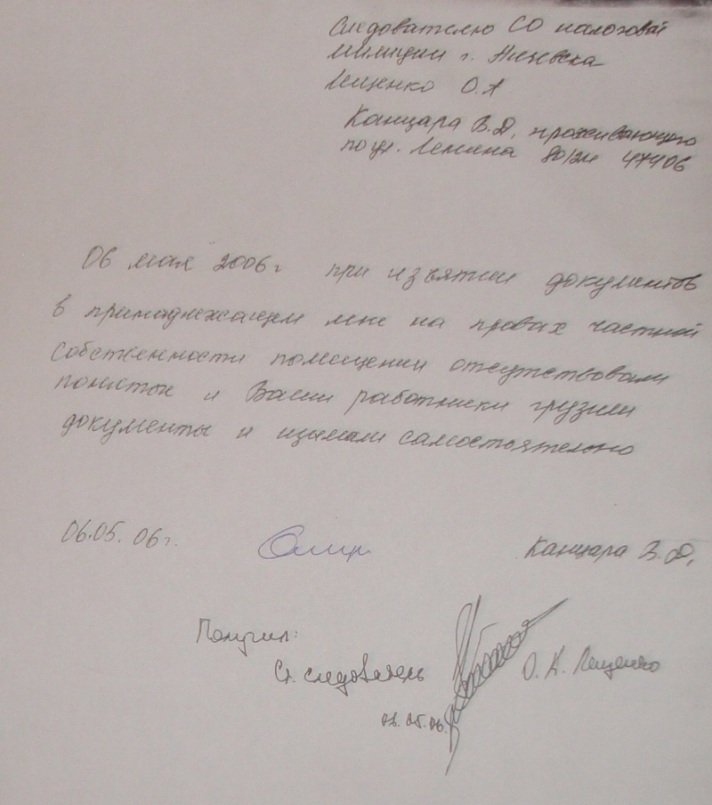 Следователю СО налоговой
милиции г.
Лещенко О.А
Канцара В.Д, проживающего
по ул. Ленина 80/24
06 мая 2006г при изъятии документов
в принадлежащем мне на правах частной
собственности помещении отсутствовали
понятые и Ваши работники грузили
документы и изымали самостоятельно
06.05.06г.
Канцара В.Д.
Получил:
Ст. следователь
О. К. Лещенко
06.05.06.